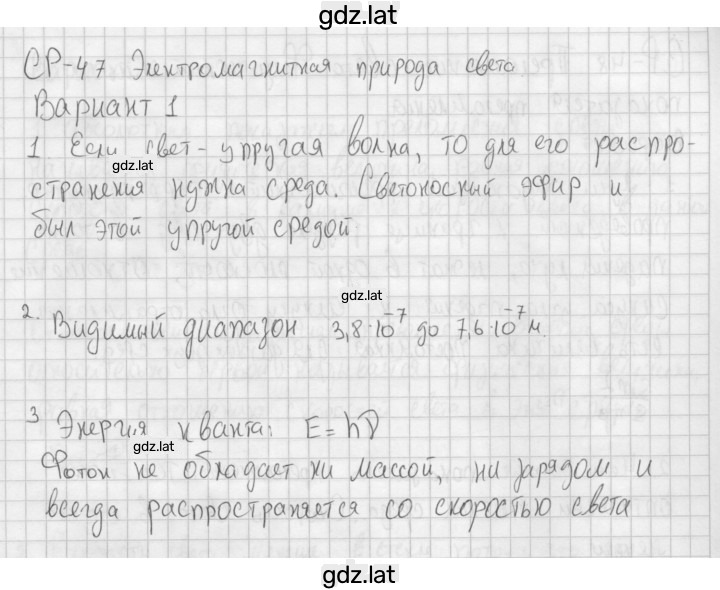 gdz.lat
СР-47 Электромагнитная природа света
Вариант 1
1 Если свет - упругая волна, то для его распро-
gdz.lat
странения нужна среда. Светоносный эфир и
был этой упругой средой
gdz.lat
2. Видимый диапазон 3,8·10⁻⁷ до 7,6·10⁻⁷ м.
3 Энергия кванта: E = hν
gdz.lat
Фотон не обладает ни массой, ни зарядом и
всегда распространяется со скоростью света
gdz.lat